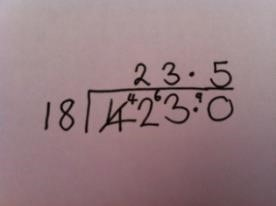 23.5
18 4⁴2⁶3.⁹0